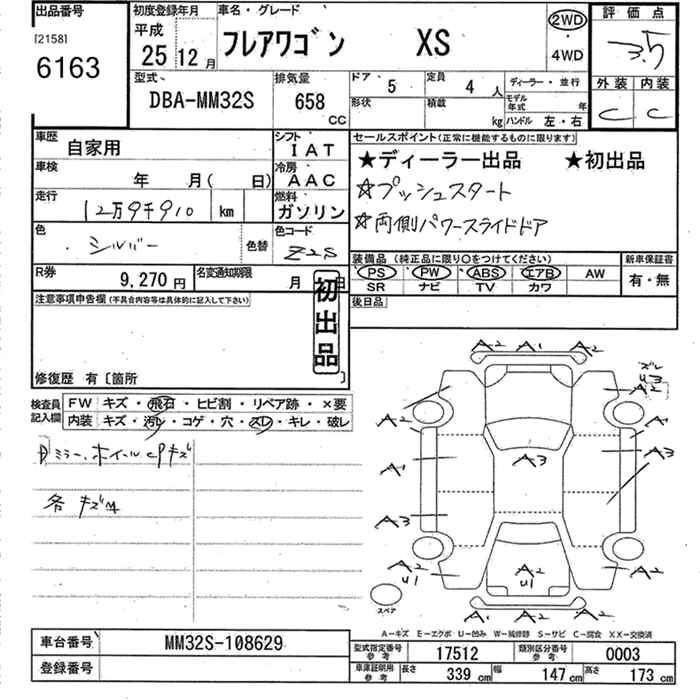 出品番号 初度登録年月 車名・グレード 評価点
[2158] 平成
6163 25 12月 フレアワゴン XS 2WD・4WD 3.5
型式 排気量 ドア 5 定員 4人 ディーラー・並行 外装 内装
DBA-MM32S 658 CC 形状 積載 kg モデル年式 年 ハンドル 左・右 C C
車歴 自家用 シフト IAT セールスポイント(正常に機能するものに限ります)
車検 年 月( 日) 冷房 AAC ★ディーラー出品 ★初出品
走行 12万9千910 km 燃料 ガソリン ☆プッシュスタート
☆両側パワースライドドア
色 シルバー 色替 色コード Z2S
装備品(純正品に限り○をつけてください) 新車保証書
R券 9,270円 名変通知期限 月 日 PS・PW・ABS・エアB・AW 有・無
SR ナビ TV カワ
注意事項申告欄(不具合内容等は具体的に記入して下さい) 初出品 後日品
修復歴 有〔箇所 〕
検査員記入欄 FW キズ・飛石・ヒビ割・リペア跡・×要
内装 キズ・汚レ・コゲ・穴・スレ・キレ・破レ
ミラー、ホイールcpキズ
各キズ
A2 A1 A2
A2 A2
A1 A3 A1
A3
A2 U1 A2 U1 A2
スペア A2 A1 A2
A-キズ E-エクボ U-凹み W-補修跡 S-サビ C-腐食 XX-交換済
車台番号 MM32S-108629 型式指定番号 参考 17512 類別区分番号 参考 0003
登録番号 車庫証明用 参考 長さ 339 cm 幅 147 cm 高さ 173 cm